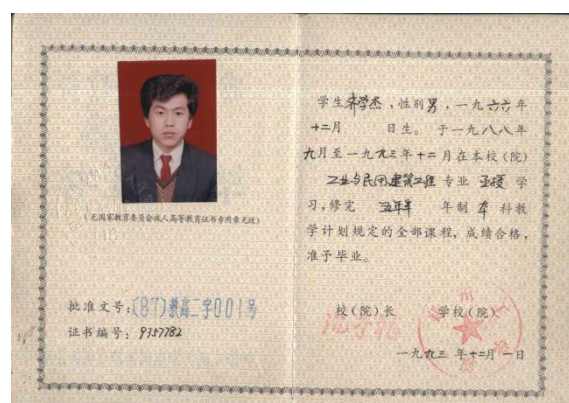 (无国家教育委员会成人高等教育证书专用章无效)
批准文号:(87)教高二字001号
证书编号:9357782
学生齐学杰,性别男,一九六六年
十二月 日生。于一九八八年
九月至一九九三年十二月在本校(院)
工业与民用建筑工程 专业 学
习,修完 五年半 年制 本 科教
学计划规定的全部课程,成绩合格,
准予毕业。
校(院)长 学校(院)
一九九三年十二月一日